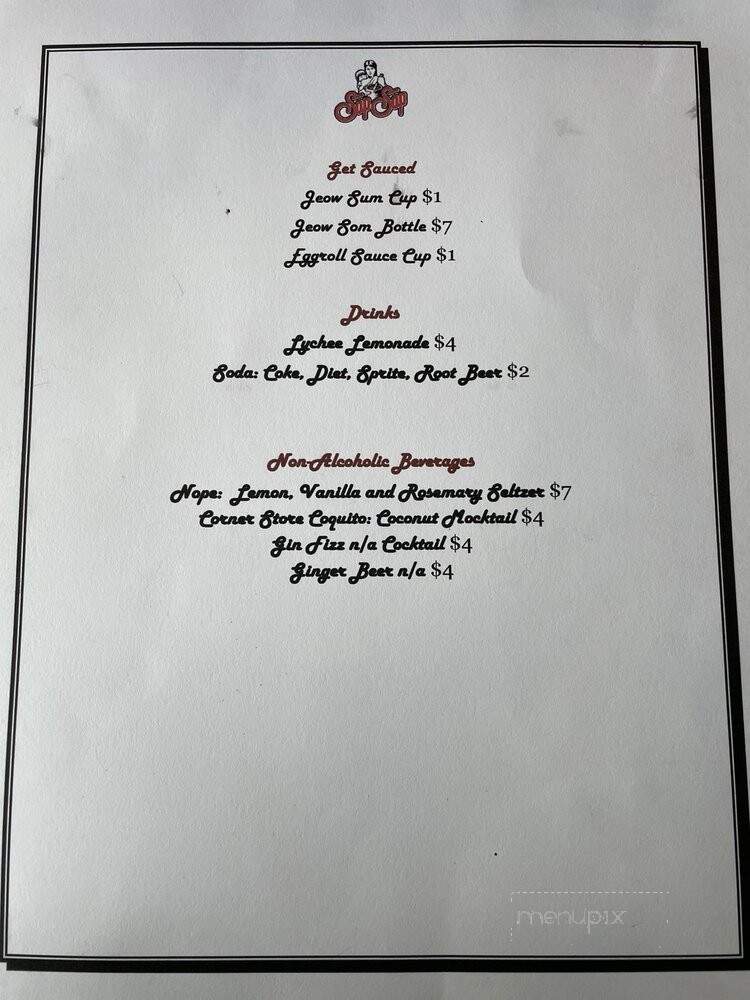 Sap Sap
Get Sauced
Jeow Sum Cup $1
Jeow Som Bottle $7
Eggroll Sauce Cup $1
Drinks
Lychee Lemonade $4
Soda: Coke, Diet, Sprite, Root Beer $2
Non-Alcoholic Beverages
Nope: Lemon, Vanilla and Rosemary Seltzer $7
Corner Store Coquito: Coconut Mocktail $4
Gin Fizz n/a Cocktail $4
Ginger Beer n/a $4
menupix